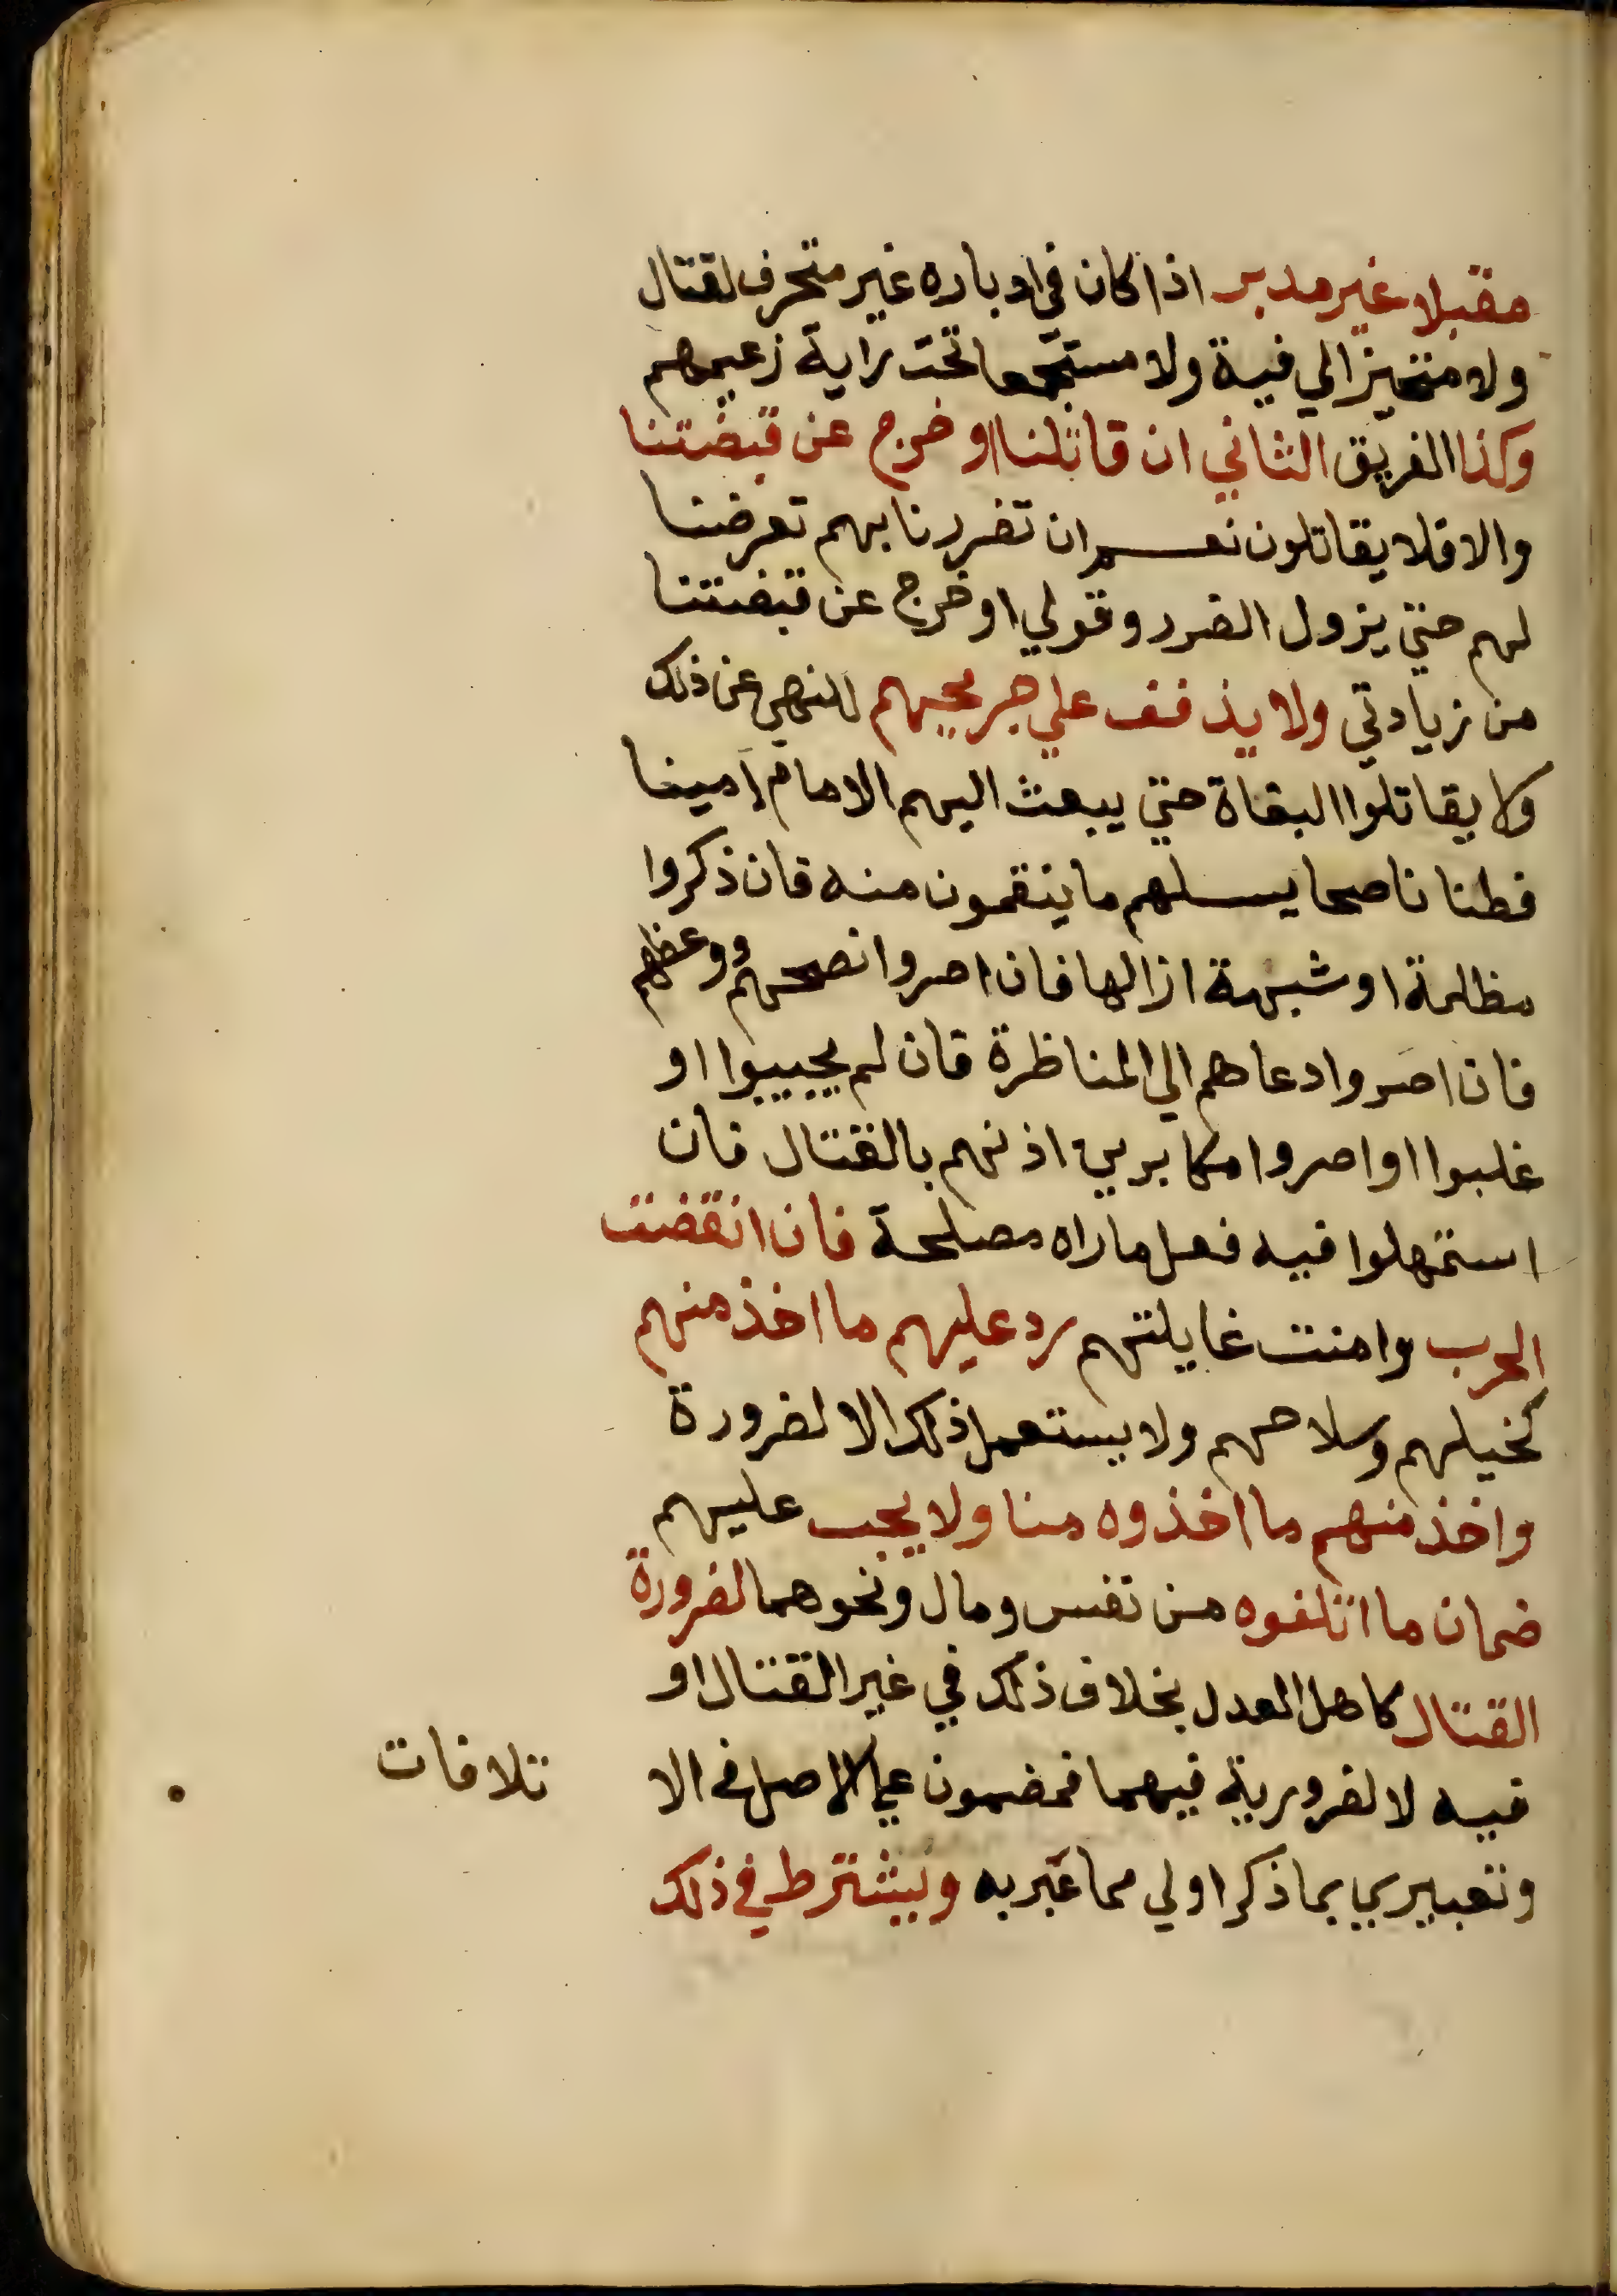 مقبلا غير مدبر اذا كان في ادباره غير متحرف لقتال
ولا متحيز الي فية ولا مستجمعا تحت راية زعيمهم
وكذا الفريق الثاني ان قاتلنا او خرج عن قبضتنا
والا فلا يقاتلون نعم ان تضررنا بهم تعرضنا
لهم حتي يزول الضرر وقولي او خرج عن قبضتنا
من زيادتي ولا يذفف علي جريحهم للنهي عن ذلك
ولا يقاتلوا البغاة حتي يبعث اليهم الامام امينا
فطنا ناصحا يسلهم ما ينقمون منه فان ذكروا
مظلمة او شبهة ازالها فان اصروا نصحهم ووعظهم
فان اصروا دعاهم الي المناظرة فان لم يجيبوا او
غلبوا او اصروا مكابرين اذنهم بالقتال فان
استمهلوا فيه فعل ما راه مصلحة فان انقضت
الحرب وامنت غايلتهم رد عليهم ما اخذ منهم
كخيلهم وسلاحهم ولا يستعمل ذلك الا لضرورة
واخذ منهم ما اخذوه منا ولا يجب عليهم
ضمان ما اتلفوه من نفس ومال ونحوهما لضرورة
القتال كاهل العدل بخلاف ذلك في غير القتال او
فيه لا لضرورية فيهما فمضمون علي الاصل في الا تلافات
وتعبيري بما ذكر اولي مما عبر به ويشترط في ذلك